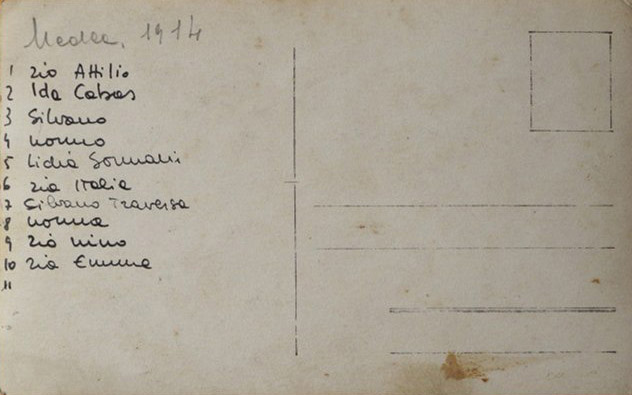 Medea, 1914
1 zio Attilio
2 Ida Cabas
3 Silvano
4 nonno
5 Lidia Sormani
6 zia Italia
7 Silvano Traversa
8 nonna
9 zio nino
10 zia Emma
11